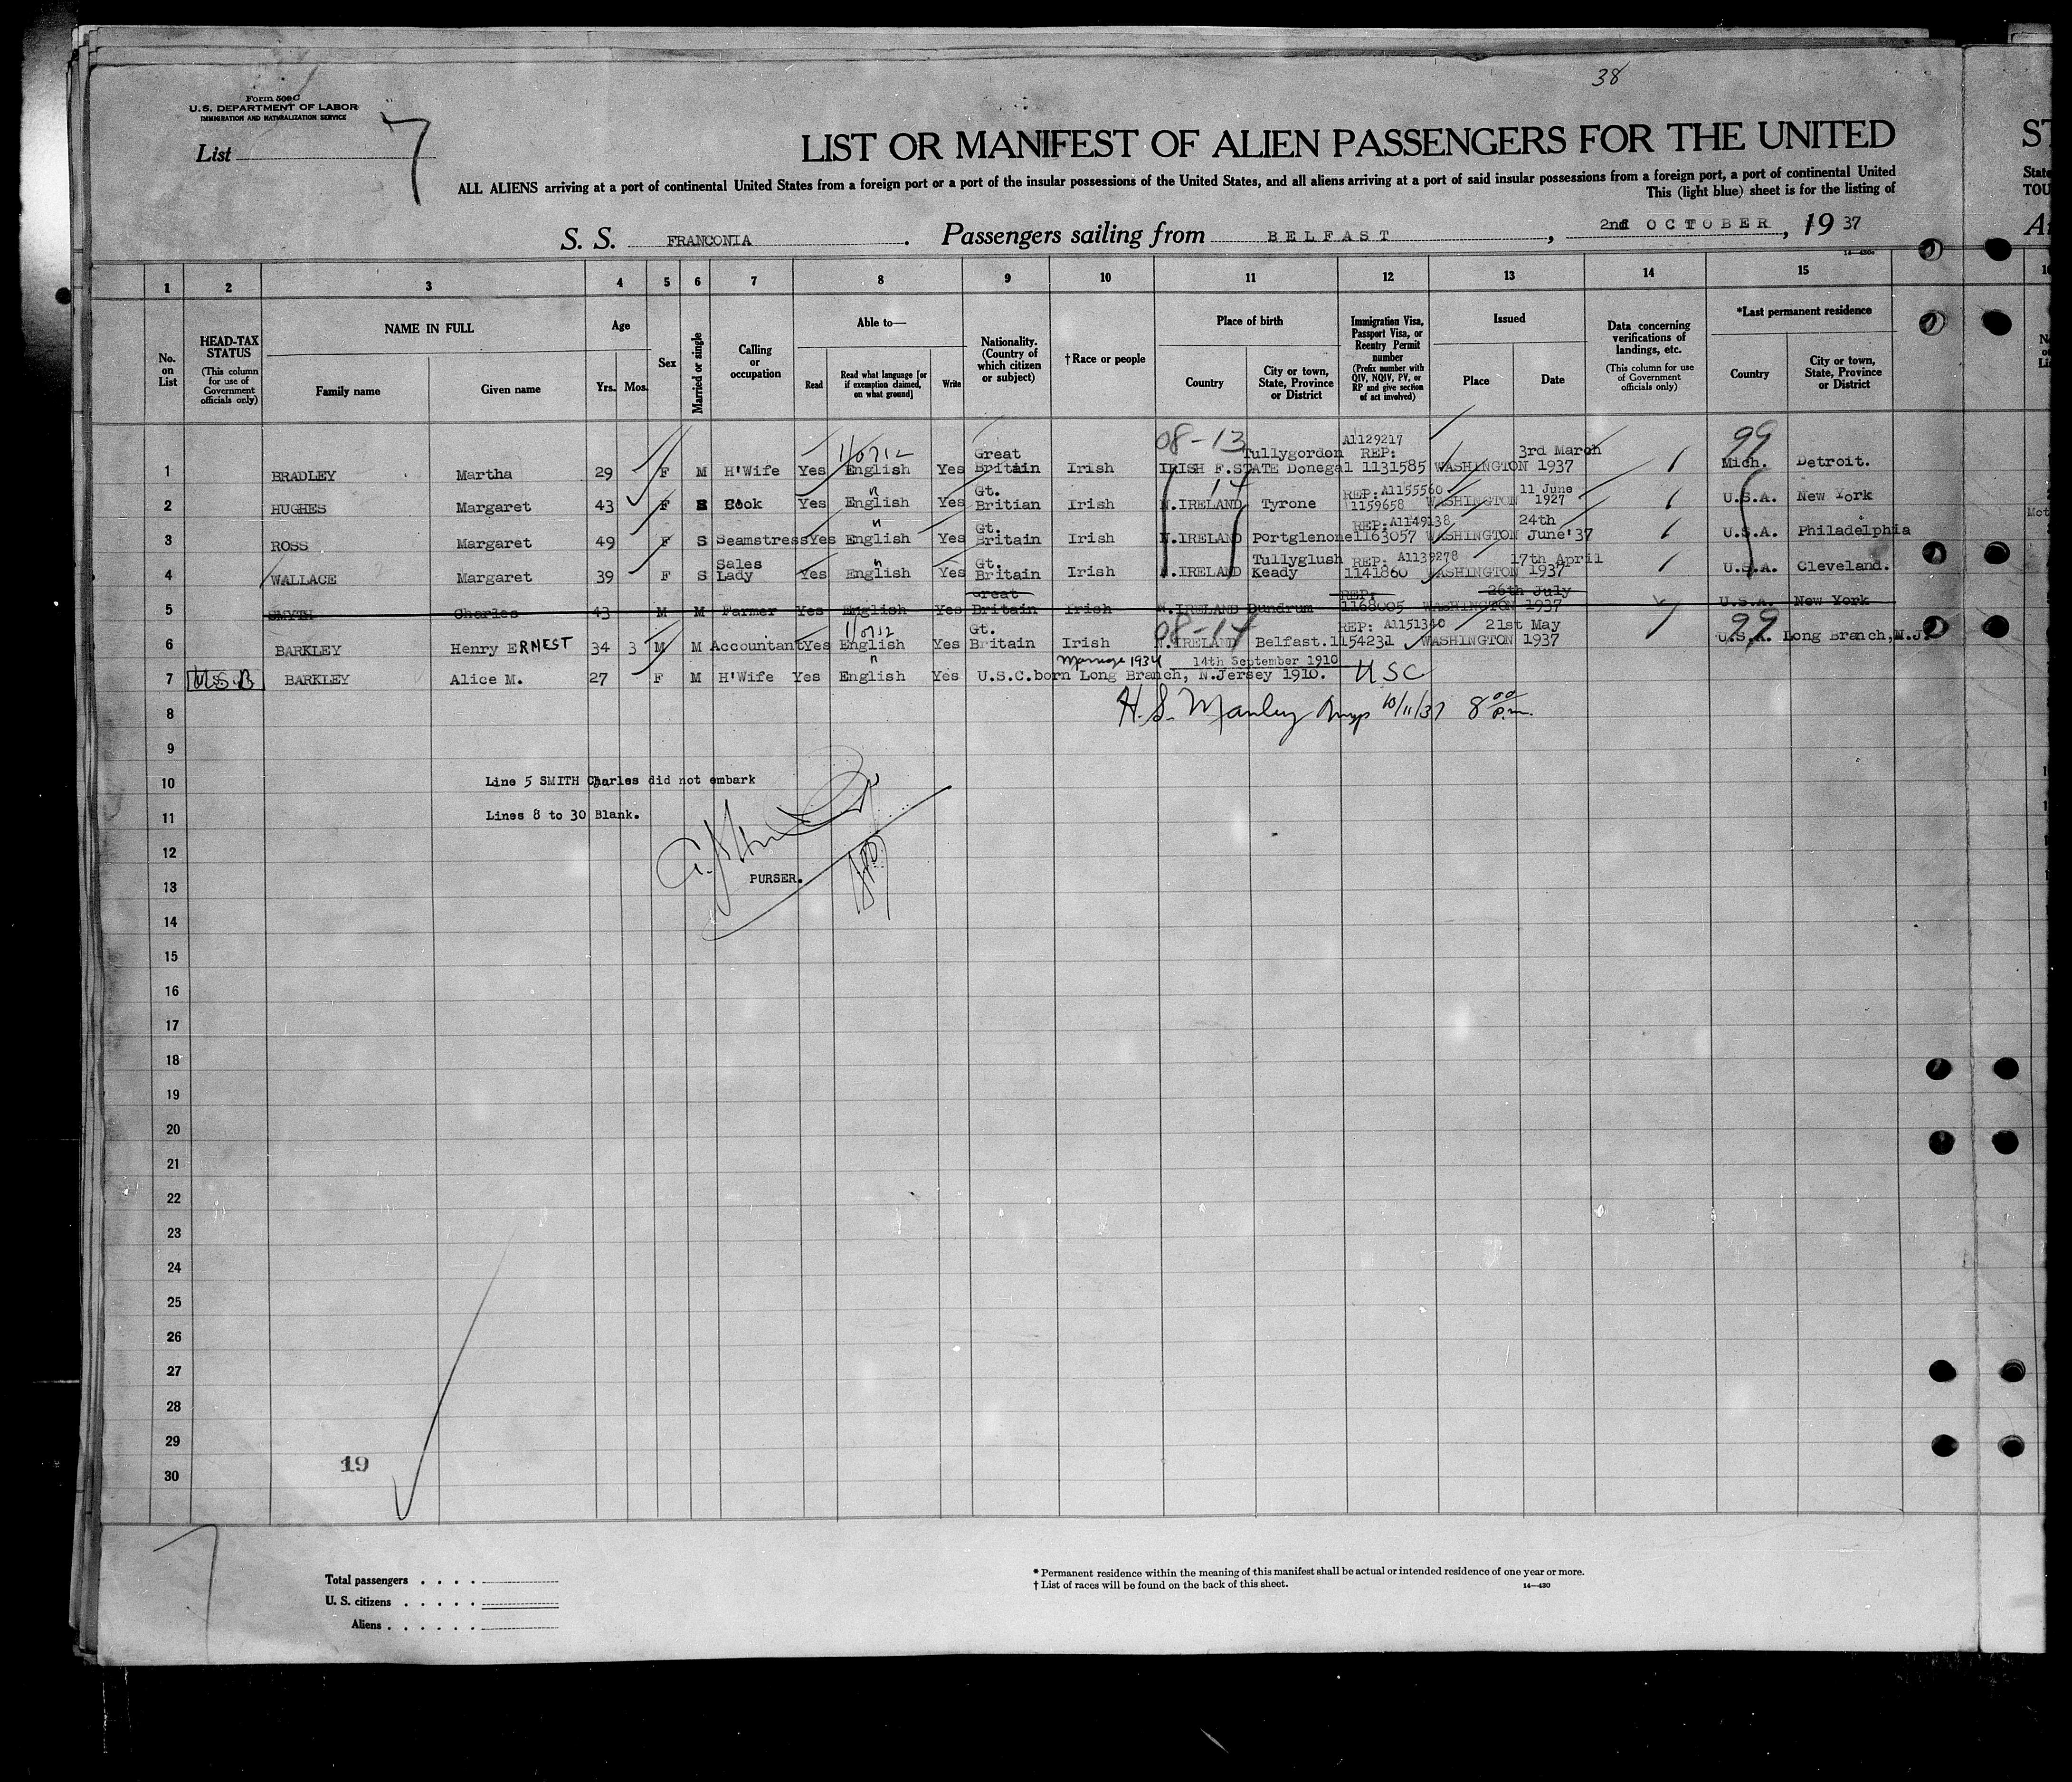 38
Form 500 C
U.S. DEPARTMENT OF LABOR
IMMIGRATION AND NATURALIZATION SERVICE
List 7
LIST OR MANIFEST OF ALIEN PASSENGERS FOR THE UNITED
ST
ALL ALIENS arriving at a port of continental United States from a foreign port or a port of the insular possessions of the United States, and all aliens arriving at a port of said insular possessions from a foreign port, a port of continental United
State
This (light blue) sheet is for the listing of
TOU
S. S. FRANCONIA. Passengers sailing from BELFAST, 2nd OCTOBER, 19 37
14—430a
1 2 3 4 5 6 7 8 9 10 11 12 13 14 15
No. on List
HEAD-TAX STATUS (This column for use of Government officials only)
NAME IN FULL Family name Given name
Age Yrs. Mos.
Sex
Married or single
Calling or occupation
Able to— Read Read what language [or if exemption claimed, on what ground] Write
Nationality. (Country of which citizen or subject)
†Race or people
Place of birth Country City or town, State, Province or District
Immigration Visa, Passport Visa, or Reentry Permit number (Prefix number with QIV, NQIV, PV, or RP and give section of act involved)
Issued Place Date
Data concerning verifications of landings, etc. (This column for use of Government officials only)
*Last permanent residence Country City or town, State, Province or District
08-13 A1129217 99
1 BRADLEY Martha 29 F M H'Wife Yes English Yes Great Britain Irish IRISH F.STATE Tullygordon Donegal REP: 1131585 WASHINGTON 3rd March 1937 Mich. Detroit.
14
2 HUGHES Margaret 43 F S Cook Yes English Yes Gt. Britian Irish N.IRELAND Tyrone REP: A1155560 1159658 WASHINGTON 11 June 1927 U.S.A. New York
3 ROSS Margaret 49 F S Seamstress Yes English Yes Gt. Britain Irish N.IRELAND Portglenone REP: A1149138 1163057 WASHINGTON 24th June'37 U.S.A. Philadelphia
4 WALLACE Margaret 39 F S Sales Lady Yes English Yes Gt. Britain Irish N.IRELAND Tullyglush Keady REP: A1139278 1141860 WASHINGTON 17th April 1937 U.S.A. Cleveland.
5 SMYTH Charles 43 M M Farmer Yes English Yes Great Britain Irish N.IRELAND Dundrum REP: 1168005 WASHINGTON 26th July 1937 U.S.A. New York
08-14 99
6 BARKLEY Henry ERNEST 34 3 M M Accountant Yes English Yes Gt. Britain Irish N.IRELAND Belfast. REP: A1151340 1154231 WASHINGTON 21st May 1937 U.S.A. Long Branch, N.J.
Marriage 1934 14th September 1910
7 BARKLEY Alice M. 27 F M H'Wife Yes English Yes U.S.C.born Long Branch, N.Jersey 1910. USC
8
H. S. Manley 10/11/37 8 00 p.m.
9
10 Line 5 SMITH Charles did not embark
11 Lines 8 to 30 Blank.
12
13 PURSER.
14
15
16
17
18
19
20
21
22
23
24
25
26
27
28
29
30
19
Total passengers
U. S. citizens
Aliens
* Permanent residence within the meaning of this manifest shall be actual or intended residence of one year or more.
† List of races will be found on the back of this sheet.
14—430